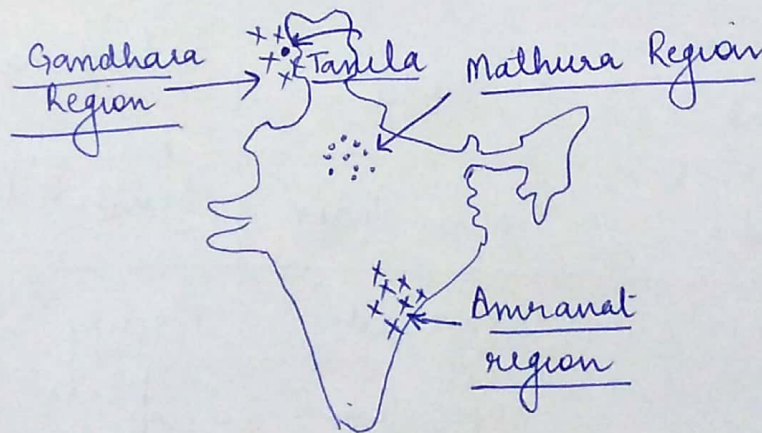 Gandhara
Region
Taxila
Mathura Region
Amranat
region